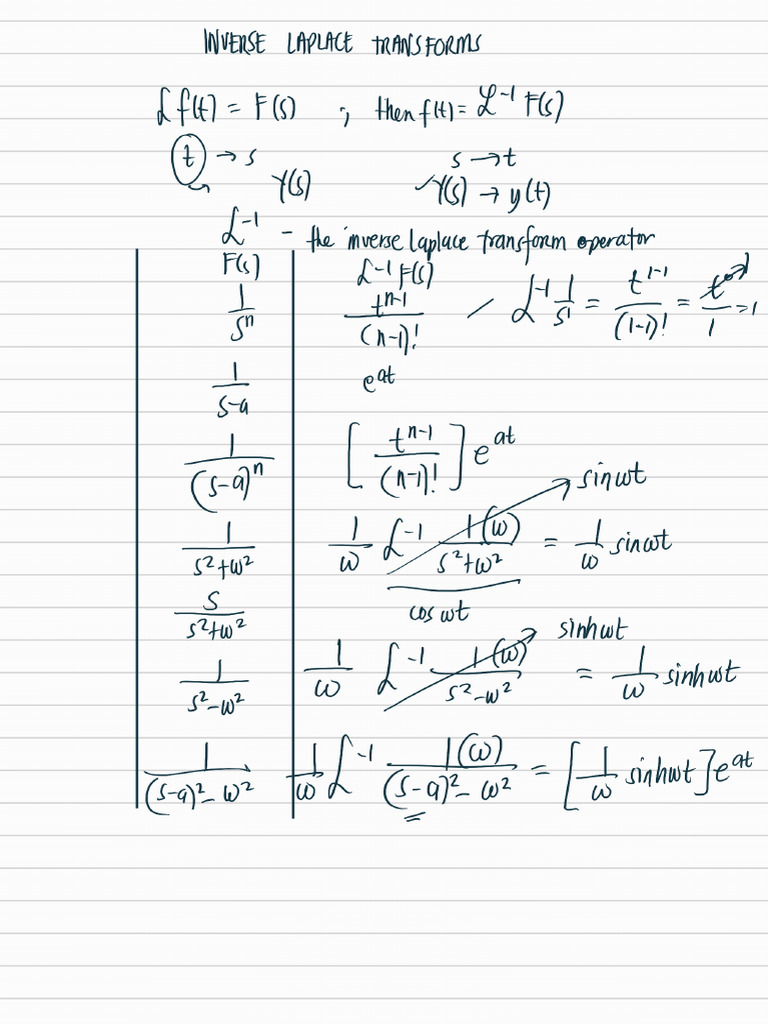 INVERSE LAPLACE TRANSFORMS
ℒ f(t) = F(s) ; then f(t) = ℒ⁻¹ F(s)
t → s s → t
Y(s) Y(s) → y(t)
ℒ⁻¹ - the inverse laplace transform operator
F(s) ℒ⁻¹ F(s)
1/sⁿ tⁿ⁻¹/(n-1)! / ℒ⁻¹ 1/s¹ = t¹⁻¹/(1-1)! = t⁰/1 = 1
1/(s-a) eᵃᵗ
1/(s-a)ⁿ [tⁿ⁻¹/(n-1)!] eᵃᵗ
sinωt
1/(s²+ω²) 1/ω ℒ⁻¹ 1(ω)/(s²+ω²) = 1/ω sinωt
s/(s²+ω²) cosωt
sinhωt
1/(s²-ω²) 1/ω ℒ⁻¹ 1(ω)/(s²-ω²) = 1/ω sinhωt
1/((s-a)²-ω²) 1/ω ℒ⁻¹ 1(ω)/((s-a)²-ω²) = [1/ω sinhωt] eᵃᵗ